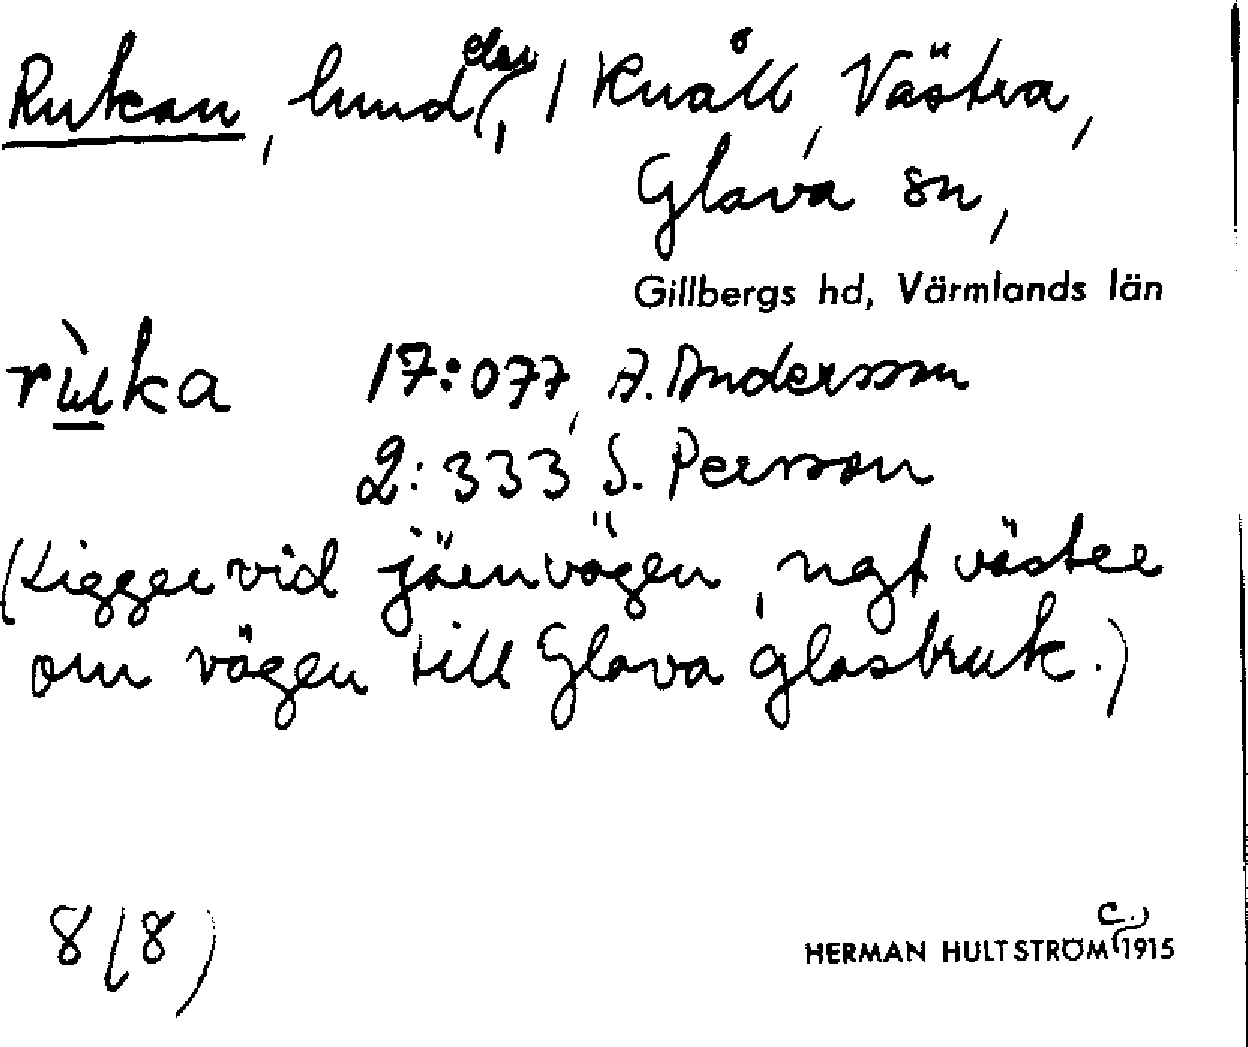 Rukan, lund(den), / Knåll, Västra,
Glava sn,
Gillbergs hd, Värmlands län
rùka 17:077, A. Andersson
2:333 S. Persson
(Ligger vid järnvägen, ngt väster
om vägen till Glava glasbruk.)
8(8)
HERMAN HULTSTRÖM (c.) 1915